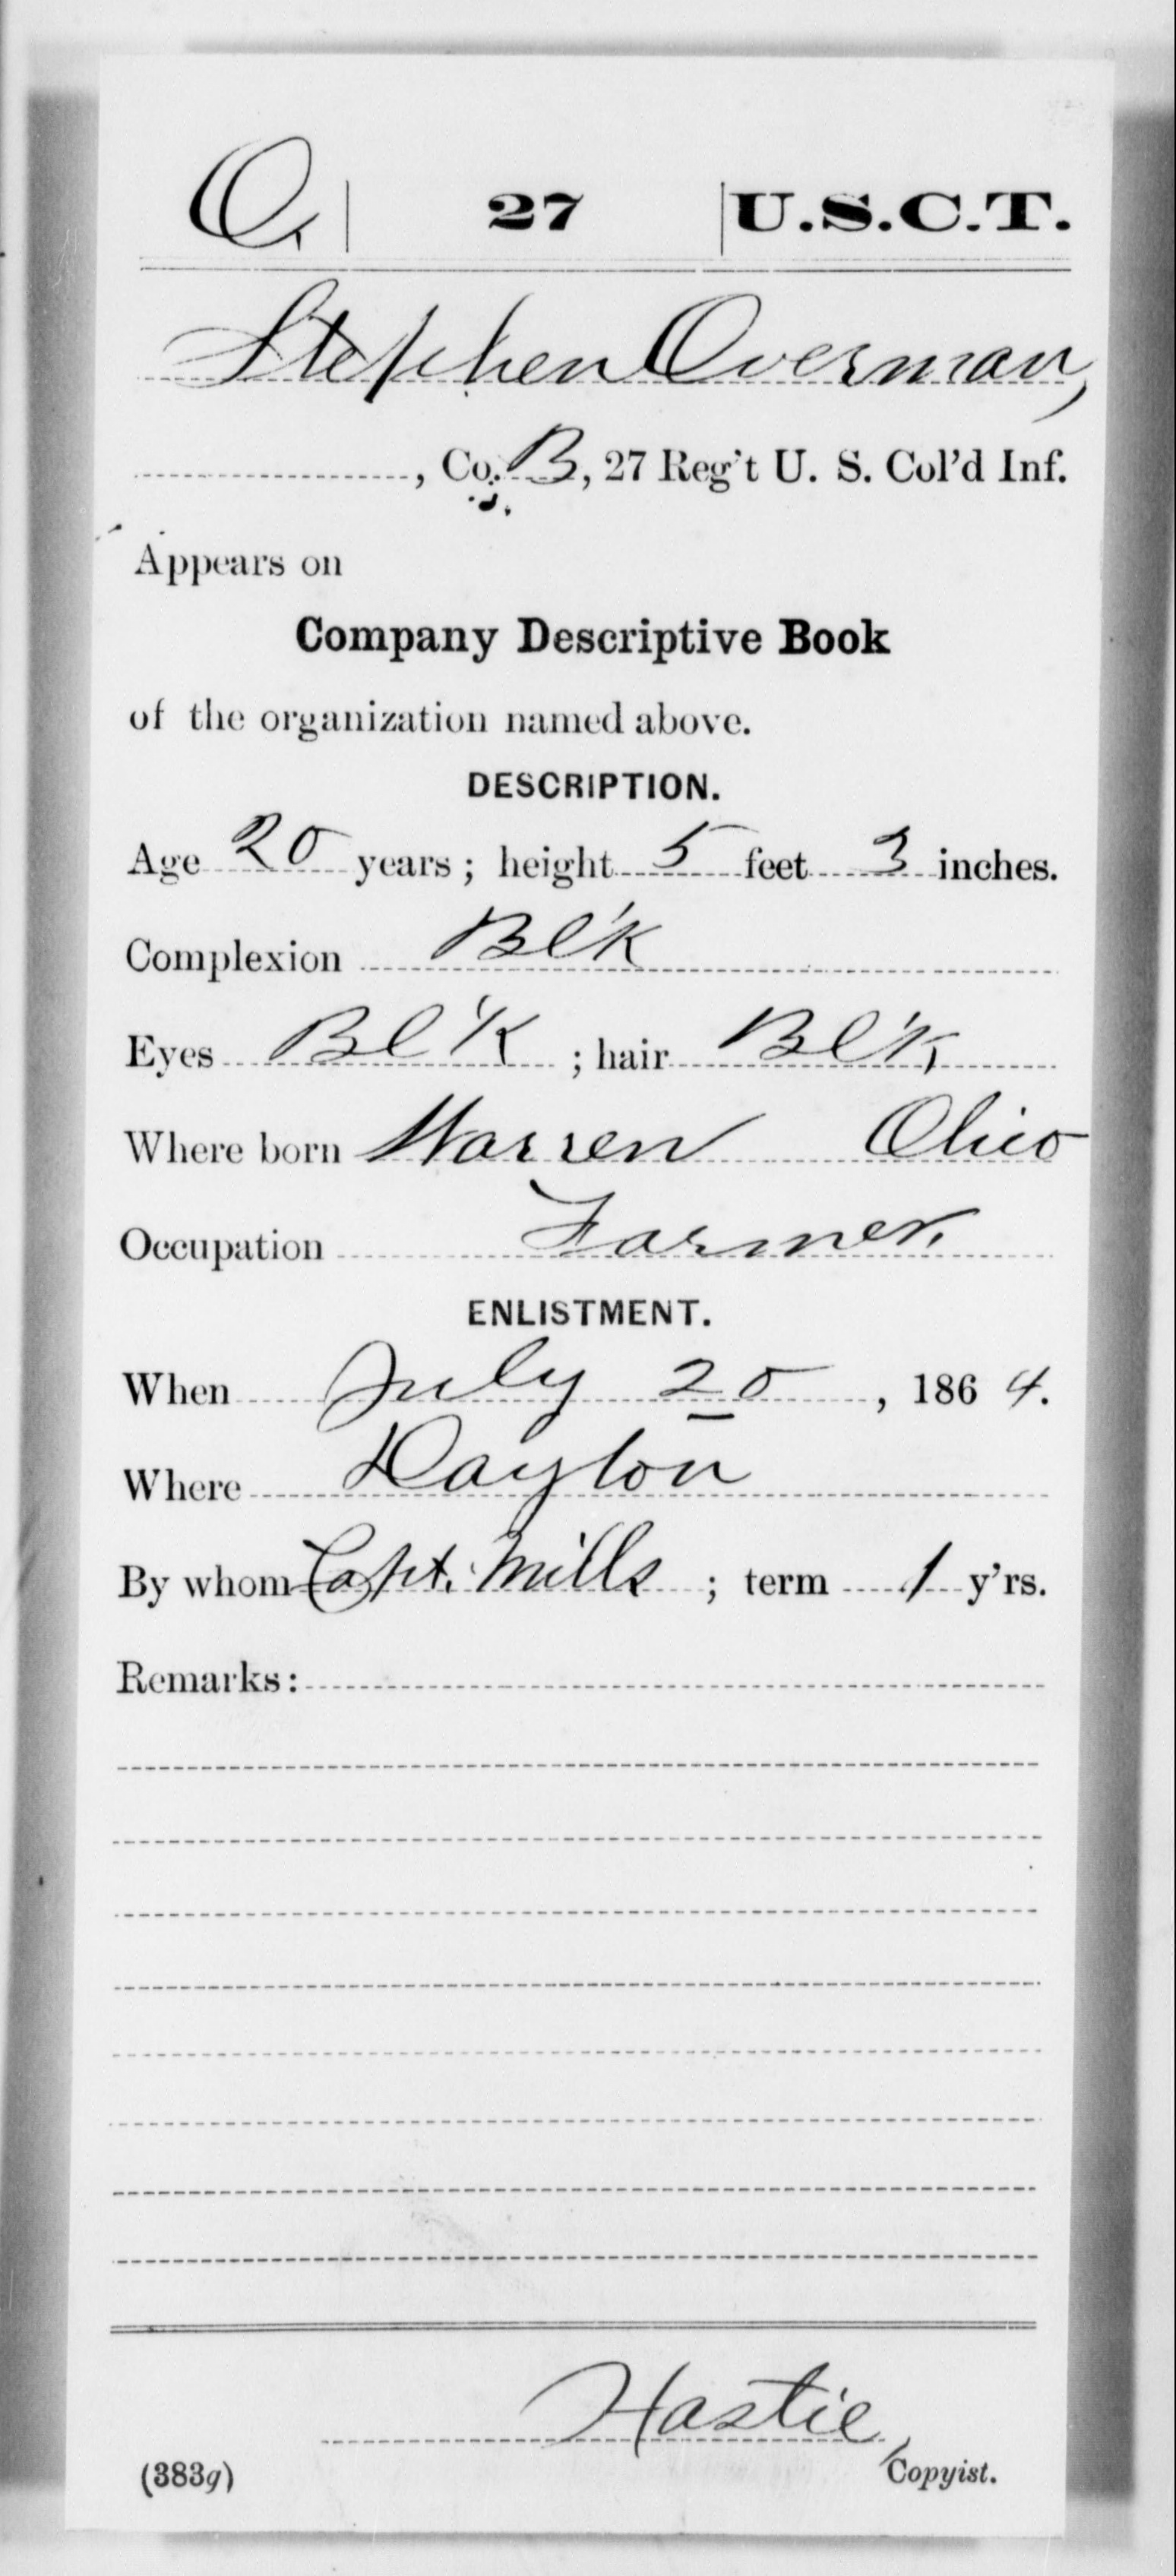 O. | 27 | U.S.C.T.
Stephen Overman,
, Co. B, 27 Reg't U. S. Col'd Inf.
Appears on
Company Descriptive Book
of the organization named above.
DESCRIPTION.
Age 20 years; height 5 feet 3 inches.
Complexion Bl'k
Eyes Bl'k ; hair Bl'k
Where born Warren Ohio
Occupation Farmer.
ENLISTMENT.
When July 20, 1864.
Where Dayton
By whom Capt. Mills ; term 1 y'rs.
Remarks:
Hastie
(383g) Copyist.